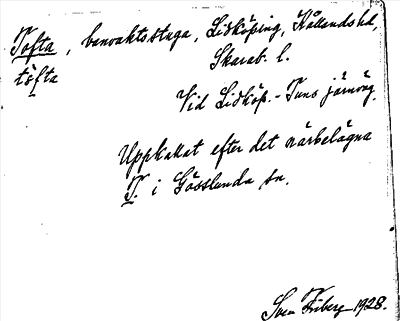 Tofta, banvaktsstuga, Lidköping, Kållands hd,
töfta
Skarab. l.
Vid Lidköp.-Tuns järnväg.
Uppkallat efter det närbelägna
T. i Gösslunda sn.
Sven Friberg 1928.